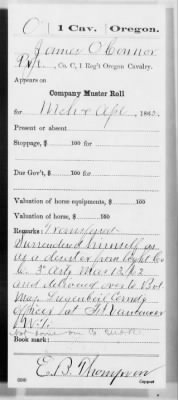 O | 1 Cav. | Oregon.
James O'Connor
Pvt., Co. C, 1 Reg't Oregon Cavalry.
Appears on
Company Muster Roll
for Mch & Apl, 1862.
Present or absent
Stoppage, $ 100 for
Due Gov't, $ 100 for
Valuation of horse equipments, $ 100
Valuation of horse, $ 100
Remarks: Transferred
Surrendered himself as
as a deserter from Light Co
C 3d Arty Mar 13/62
and delivered over to Bvt
Maj. Lugenbeil Comdg
officer at Ft Vancouver
W.T.
Book mark:
E. B. Thompson
Copyist.